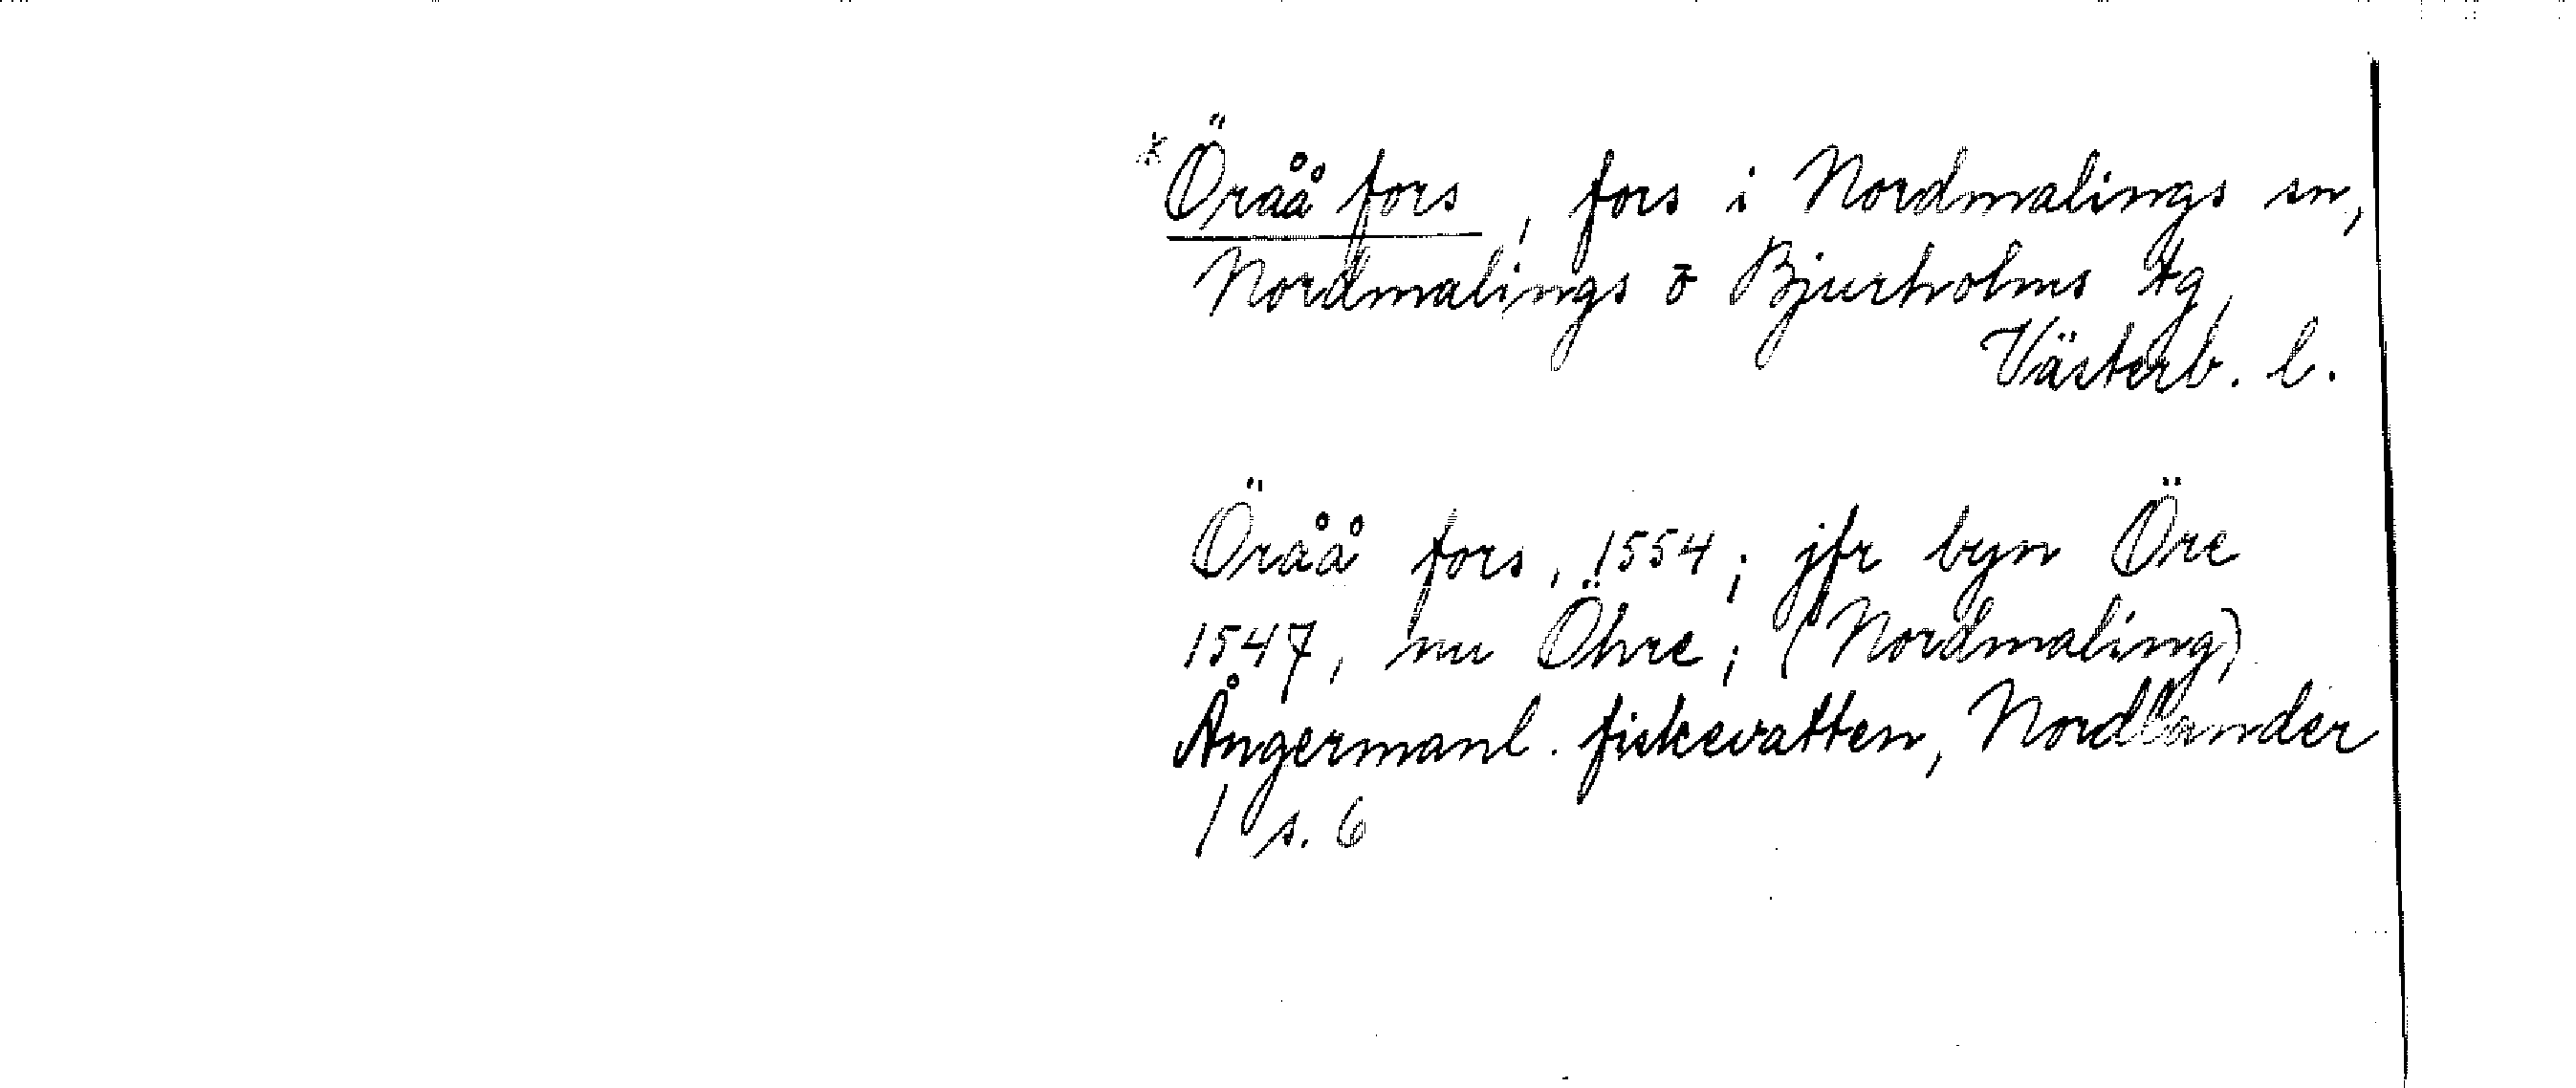 *Öråå fors, fors i Nordmalings sn,
Nordmalings o Bjurholms tg,
Västerb. l.
Öråå fors, 1554; jfr byn Öre
1547, nu Öhre; (Nordmaling)
Ångermanl. fiskevatten, Nordlander
1 s. 6